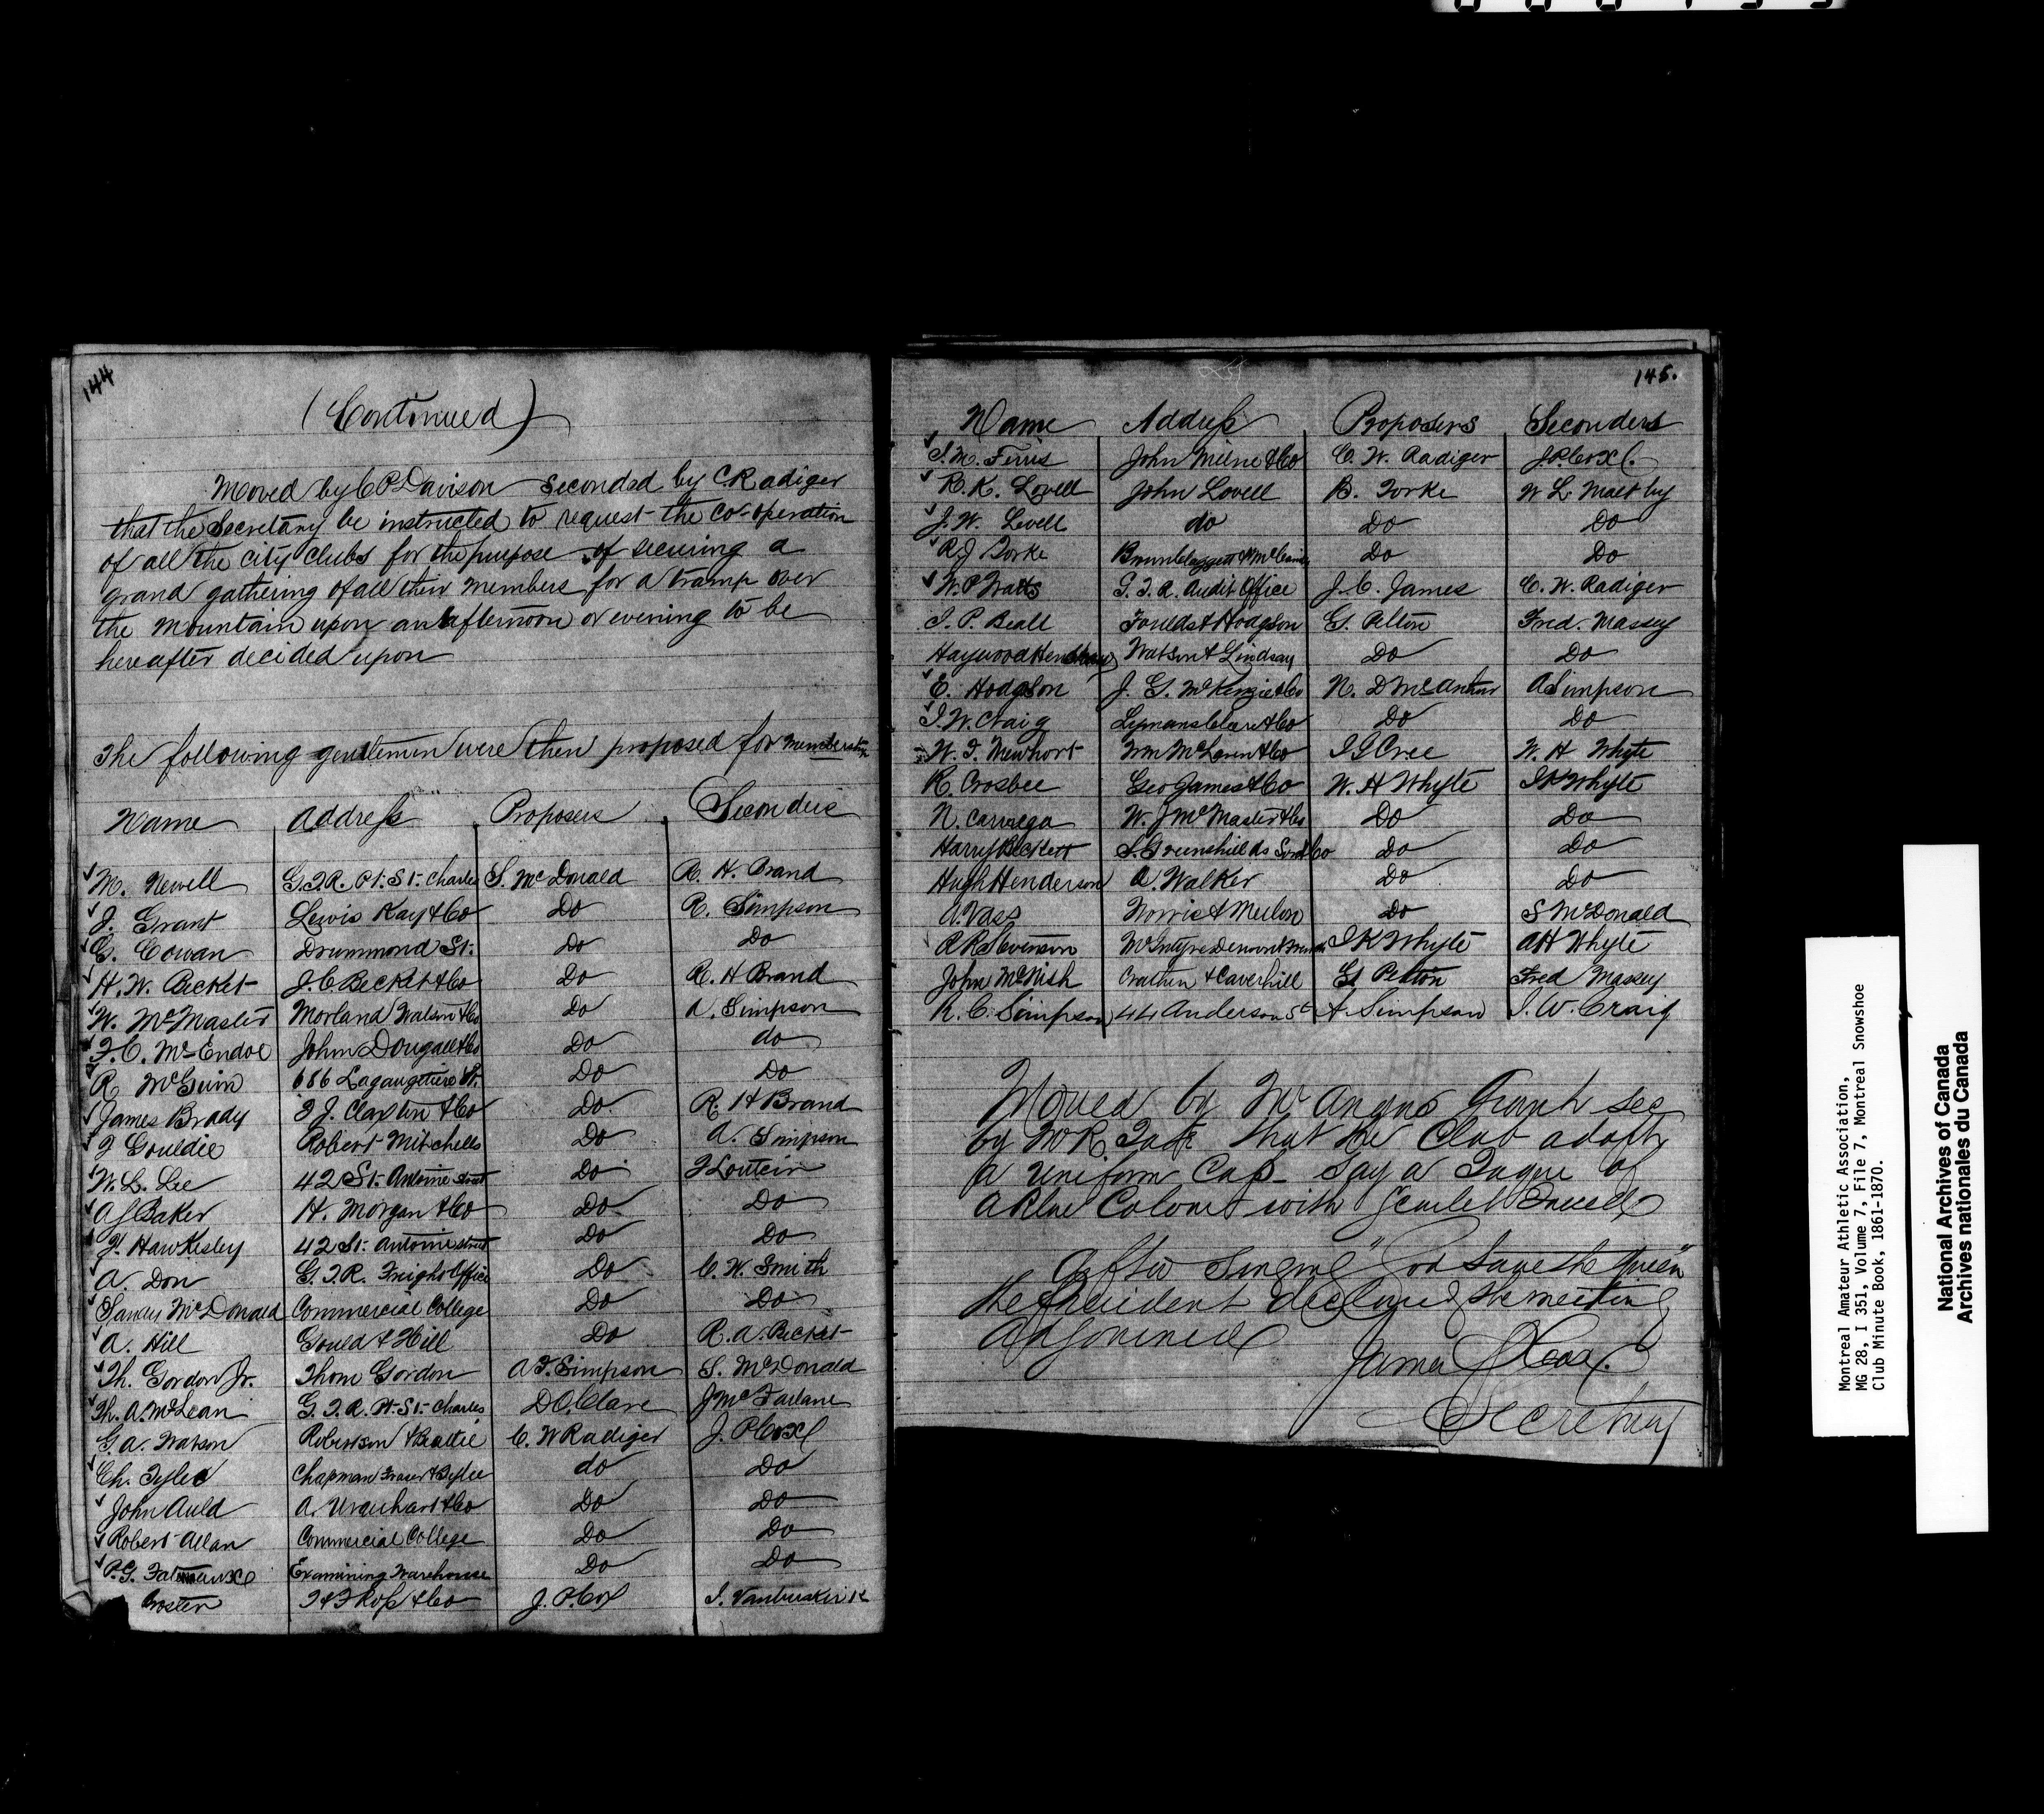 144
(Continued)
Moved by C P Davison Seconded by C Radiger
that the Secretary be instructed to request the co-operation
of all the city clubs for the purpose of securing a
grand gathering of all their members for a tramp over
the Mountain upon an afternoon or evening to be
hereafter decided upon
The following gentlemen were then proposed for membership
Name Address Proposers Seconders
M. Newell G.T.R. Pt. St. Charles S. McDonald R. H. Brand
J. Grant Lewis Kay & Co Do R. Simpson
G. Cowan Drummond St. Do Do
H. W. Becket J. C. Becket & Co Do R. H Brand
W. McMaster Morland Watson & Co Do A. Simpson
F. C. McEndoe John Dougall & Co Do do
R McGuin 686 Lagaugetiere St. Do Do
James Brady T J. Claxton & Co Do R H Brand
J Gouldie Robert Mitchells Do A. Simpson
W. L. Lee 42 St. Antoine Street Do
A J Baker H. Morgan & Co Do Do
J. Hawkesley 42 St. Antoine street Do Do
A. Don G. T.R. Freight Office Do C. W. Smith
Sandy McDonald Commercial College Do Do
A. Hill Gould & Hill Do R. A. Becket
Th. Gordon Jr. Thom Gordon A F. Simpson S. McDonald
Th. A. McLean G. T. R. Pt. St. Charles D C. Clare J McFarlane
G. A. Watson Robertson & Beattie C. W Radiger J. P Cox
Ch. Tylee Chapman Fraser & Tylee do Do
John Auld A. Urquhart & Co Do Do
Robert Allan Commercial College Do Do
P. G. Examining Warehouse Do Do
Foster T & F Ross & Co J. P. Cox J. Vanbuskirk
145.
Name Address Proposers Seconders
J. M. Ferris John Milne & Co C. W. Radiger J. P. Cox
R. K. Lovell John Lovell B. Torke W L. Maltby
J. W. Lovell do Do Do
R J Torke Do Do
W. P Watts G. T. R. Audit Office J. C. James C. W. Radiger
J. P. Beall Foulds & Hodgson G. Pelton Fred. Massey
Haywood Henshaw Watson & Lindsay Do Do
E. Hodgson J. G. McKenzie & Co N. D McArthur A Simpson
J. W. Craig Lymans Clare & Co Do Do
W. J. Mewhort Wm McLaren & Co J G Cree W. H Whyte
R. Crosbee Geo James & Co W. H Whyte J K Whyte
N. Carvega W. J McMaster & Co Do Do
Harry Beckett S. Greenshields Son & Co Do Do
Hugh Henderson A. Walker Do Do
A Vass Do S McDonald
R R Stevenson McIntyre Denoon & J K Whyte A H Whyte
John McNish Crathern & Caverhill G. Pelton Fred Massey
R. C. Simpson 44 Anderson St A. Simpson J. W. Craig
Moved by Mr Angus Grant sec
by W R that the Club adopt
a uniform Cap - say a Tuque of
a Blue Colour with Scarlet Tassell
After Singing "God Save the Queen"
the President declared the meeting
Adjourned
James P Cox.
Secretary
Montreal Amateur Athletic Association,
MG 28, I 351, Volume 7, File 7, Montreal Snowshoe
Club Minute Book, 1861-1870.
National Archives of Canada
Archives nationales du Canada